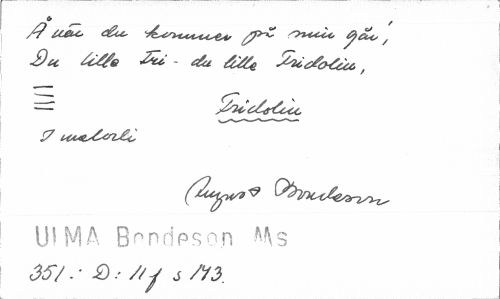 Å när du kommer på min går',
Du lille Fri- du lille Fridolin,
Fridolin
I melodi
August Bondeson
ULMA Bondeson Ms
351.: D: 11 f s 143.